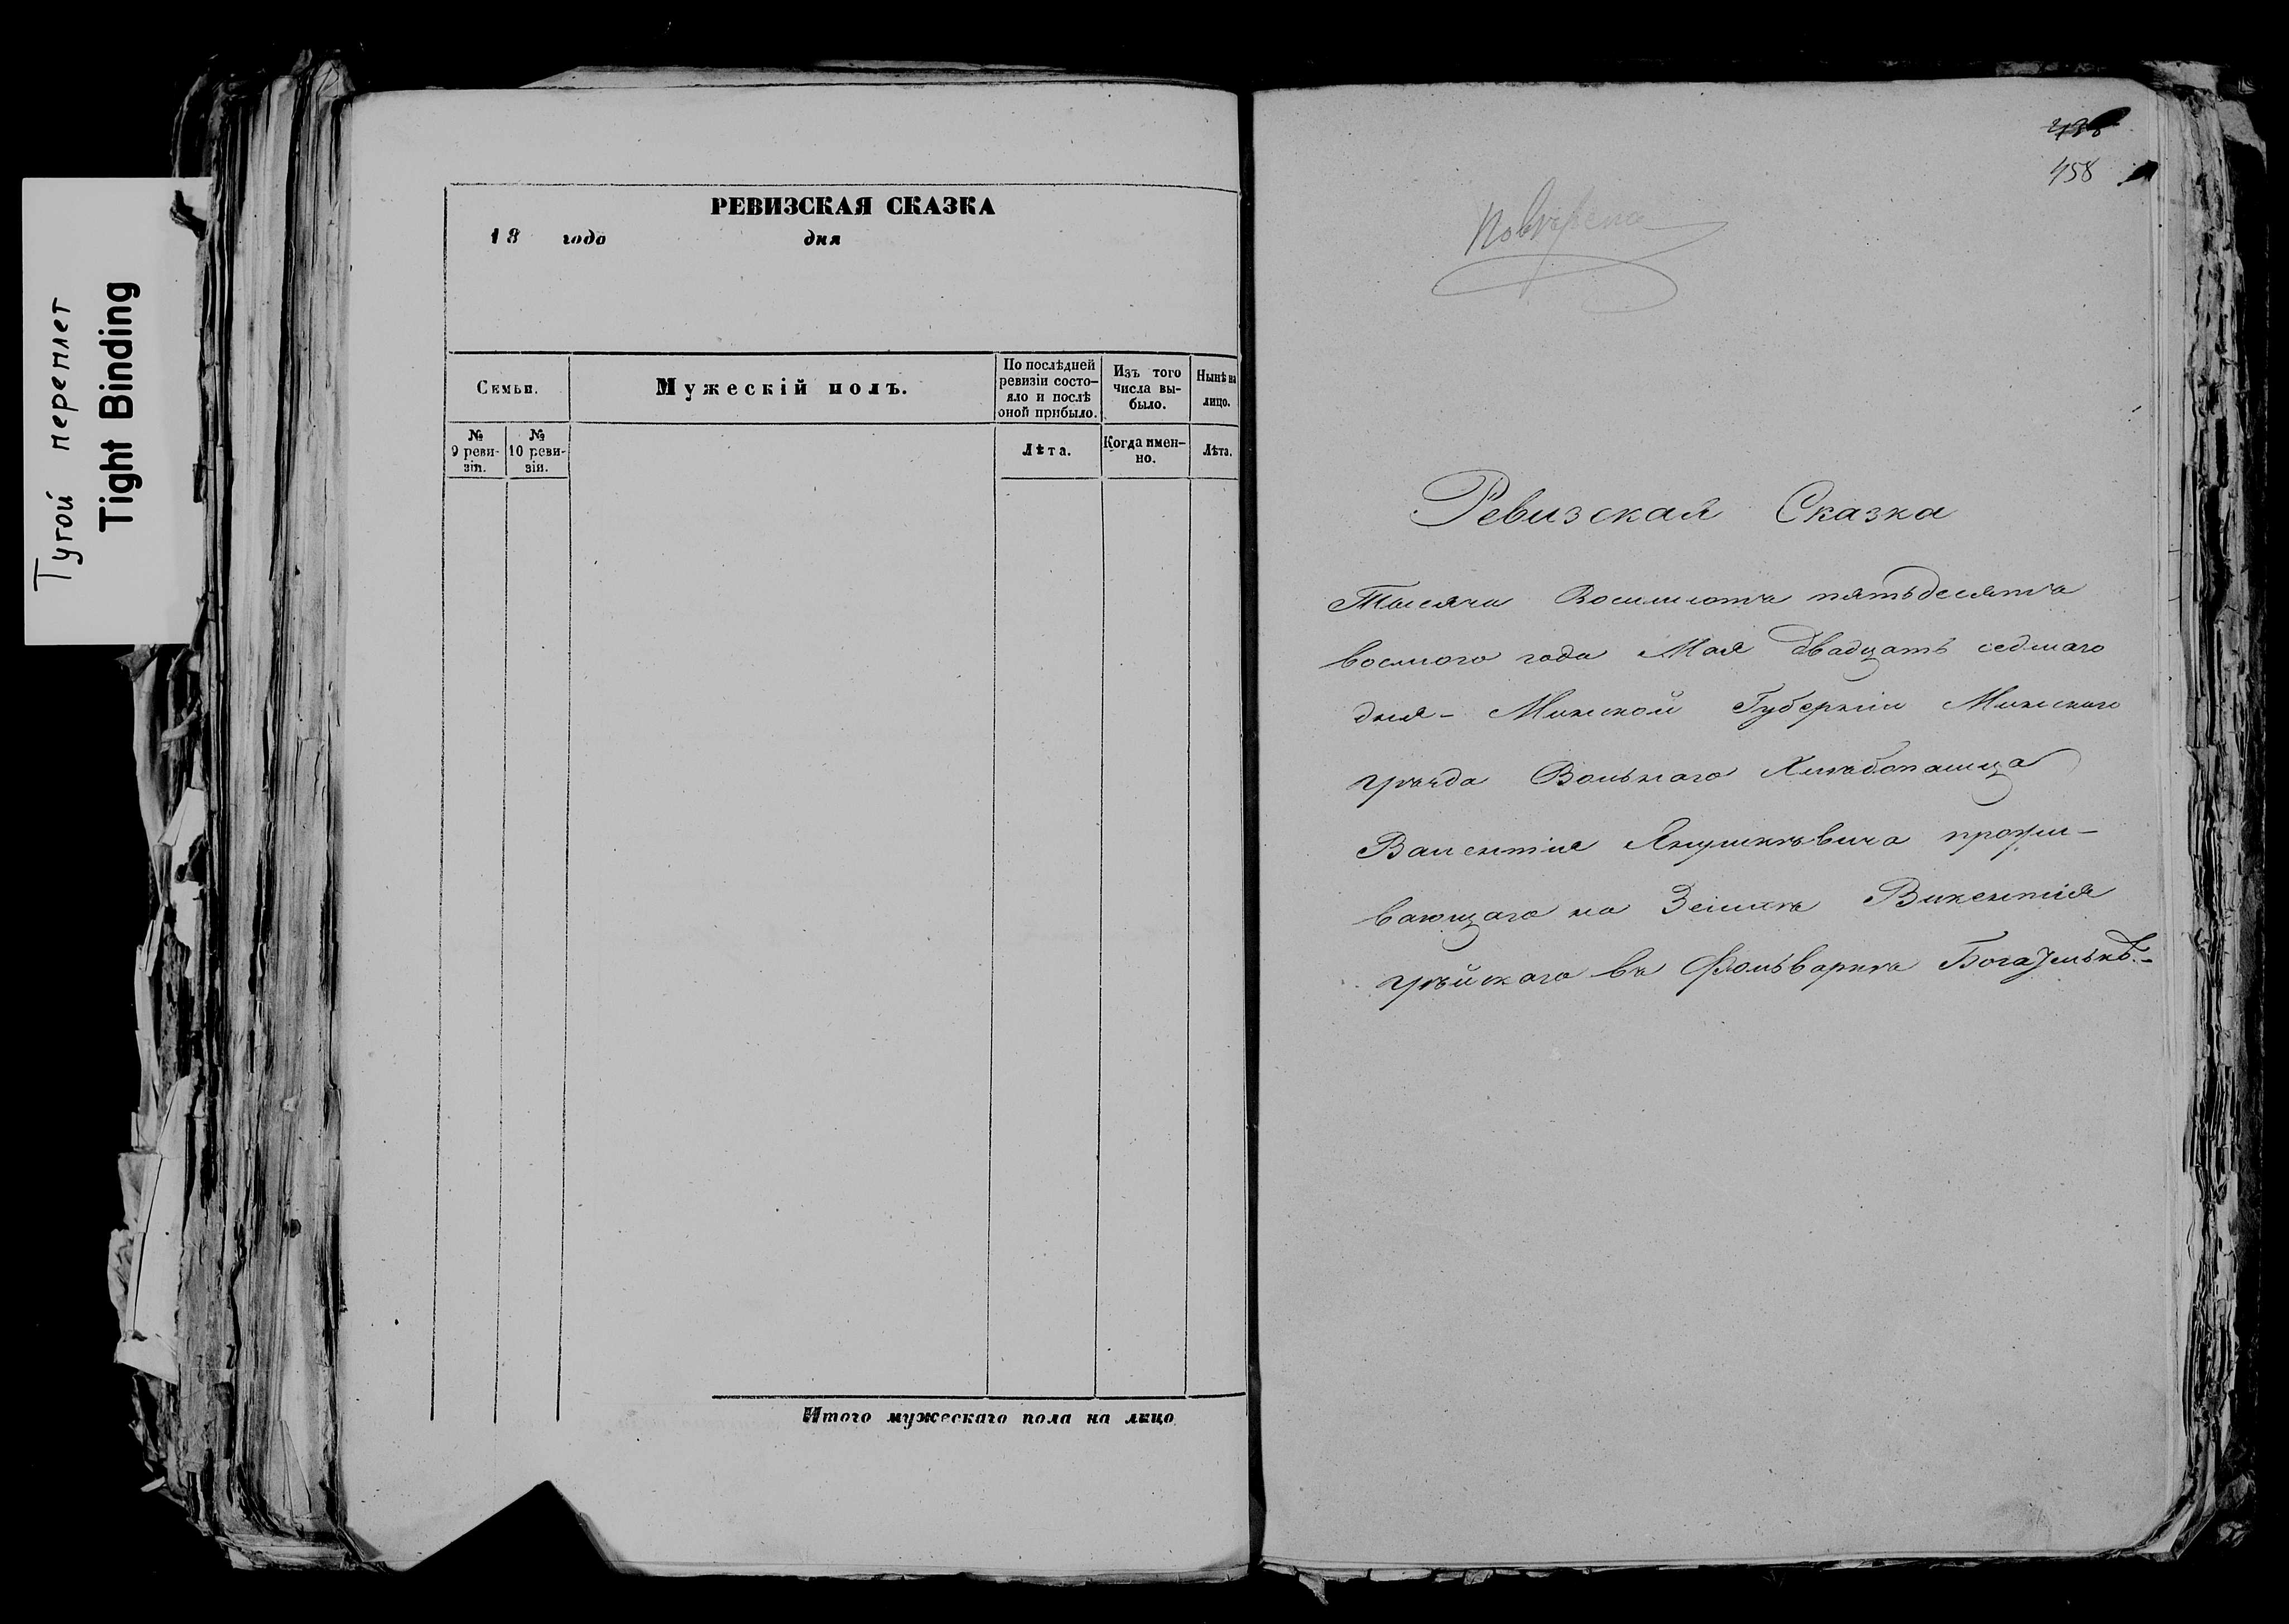 Тугой переплет
Tight Binding
РЕВИЗСКАЯ СКАЗКА
18 года дня
Семьи.
Мужескій полъ.
По послѣдней
ревизіи состо-
яло и послѣ
оной прибыло.
Изъ того
числа вы-
было.
Нынѣ на
лицо.
№
9 реви-
зіи.
№
10 реви-
зіи.
Лѣта.
Когда имен-
но.
Лѣта.
Итого мужескаго пола на лицо
458
Повѣрена
Ревизская Сказка
Тысяча Восимсотъ пятьдесятъ
восмого года Мая двадцать седмаго
дня - Минской Губерніи Минскаго
уѣзда Вольнаго Хлѣбопашца
Валентія Янушкѣвича прожи-
вающаго на Землѣ Викентія
въ Фольваркѣ